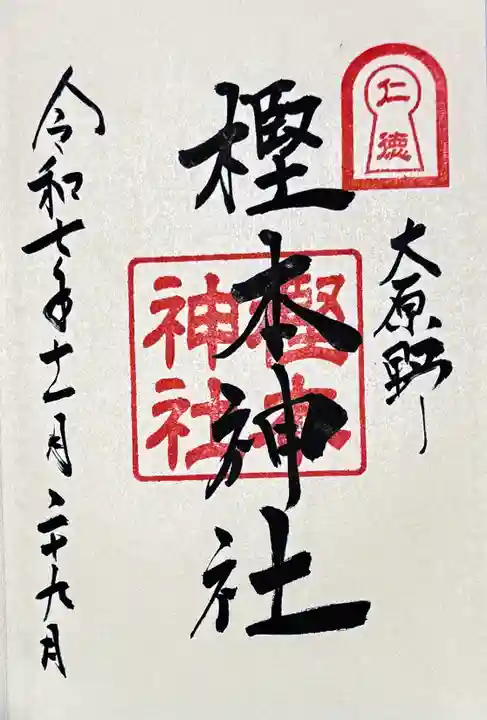 仁徳
大原野
樫本神社
樫本神社
令和七年十一月二十九日